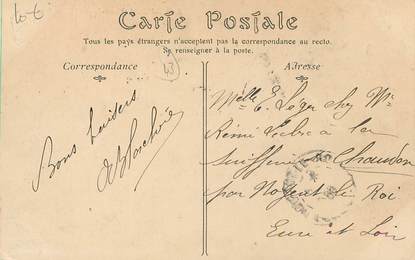 10 €
Carte Postale
Tous les pays étrangers n'acceptent pas la correspondance au recto.
Se renseigner à la poste.
Correspondance
Adresse
Bons baisers
Melle E. Léger chez Mr
Rémi à la
Chaudon
par Nogent le Roi
Eure et Loir